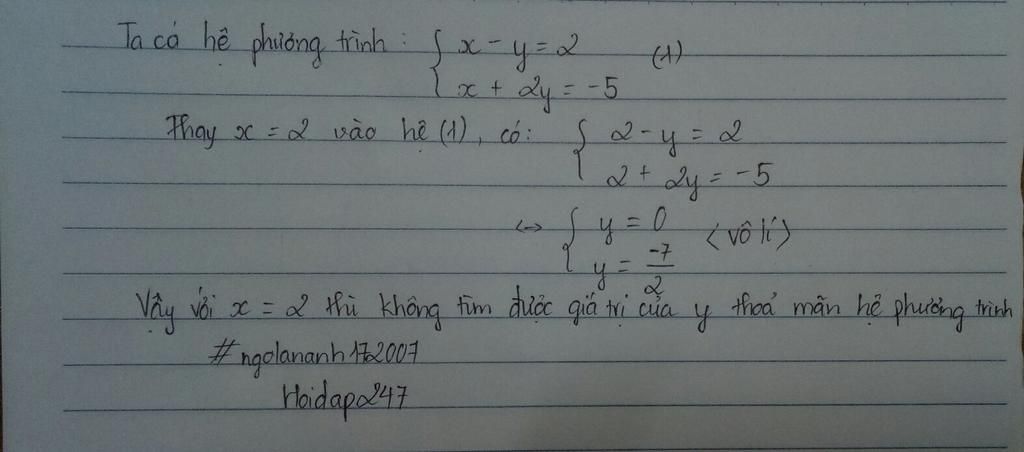 Ta có hệ phương trình : { x - y = 2 (1)
x + 2y = -5
Thay x = 2 vào hệ (1), có: { 2 - y = 2
2 + 2y = -5
<-> { y = 0 <vô lí>
y = -7/2
Vậy với x = 2 thì không tìm được giá trị của y thoả mãn hệ phương trình
#ngolananh172007
Hoidap247